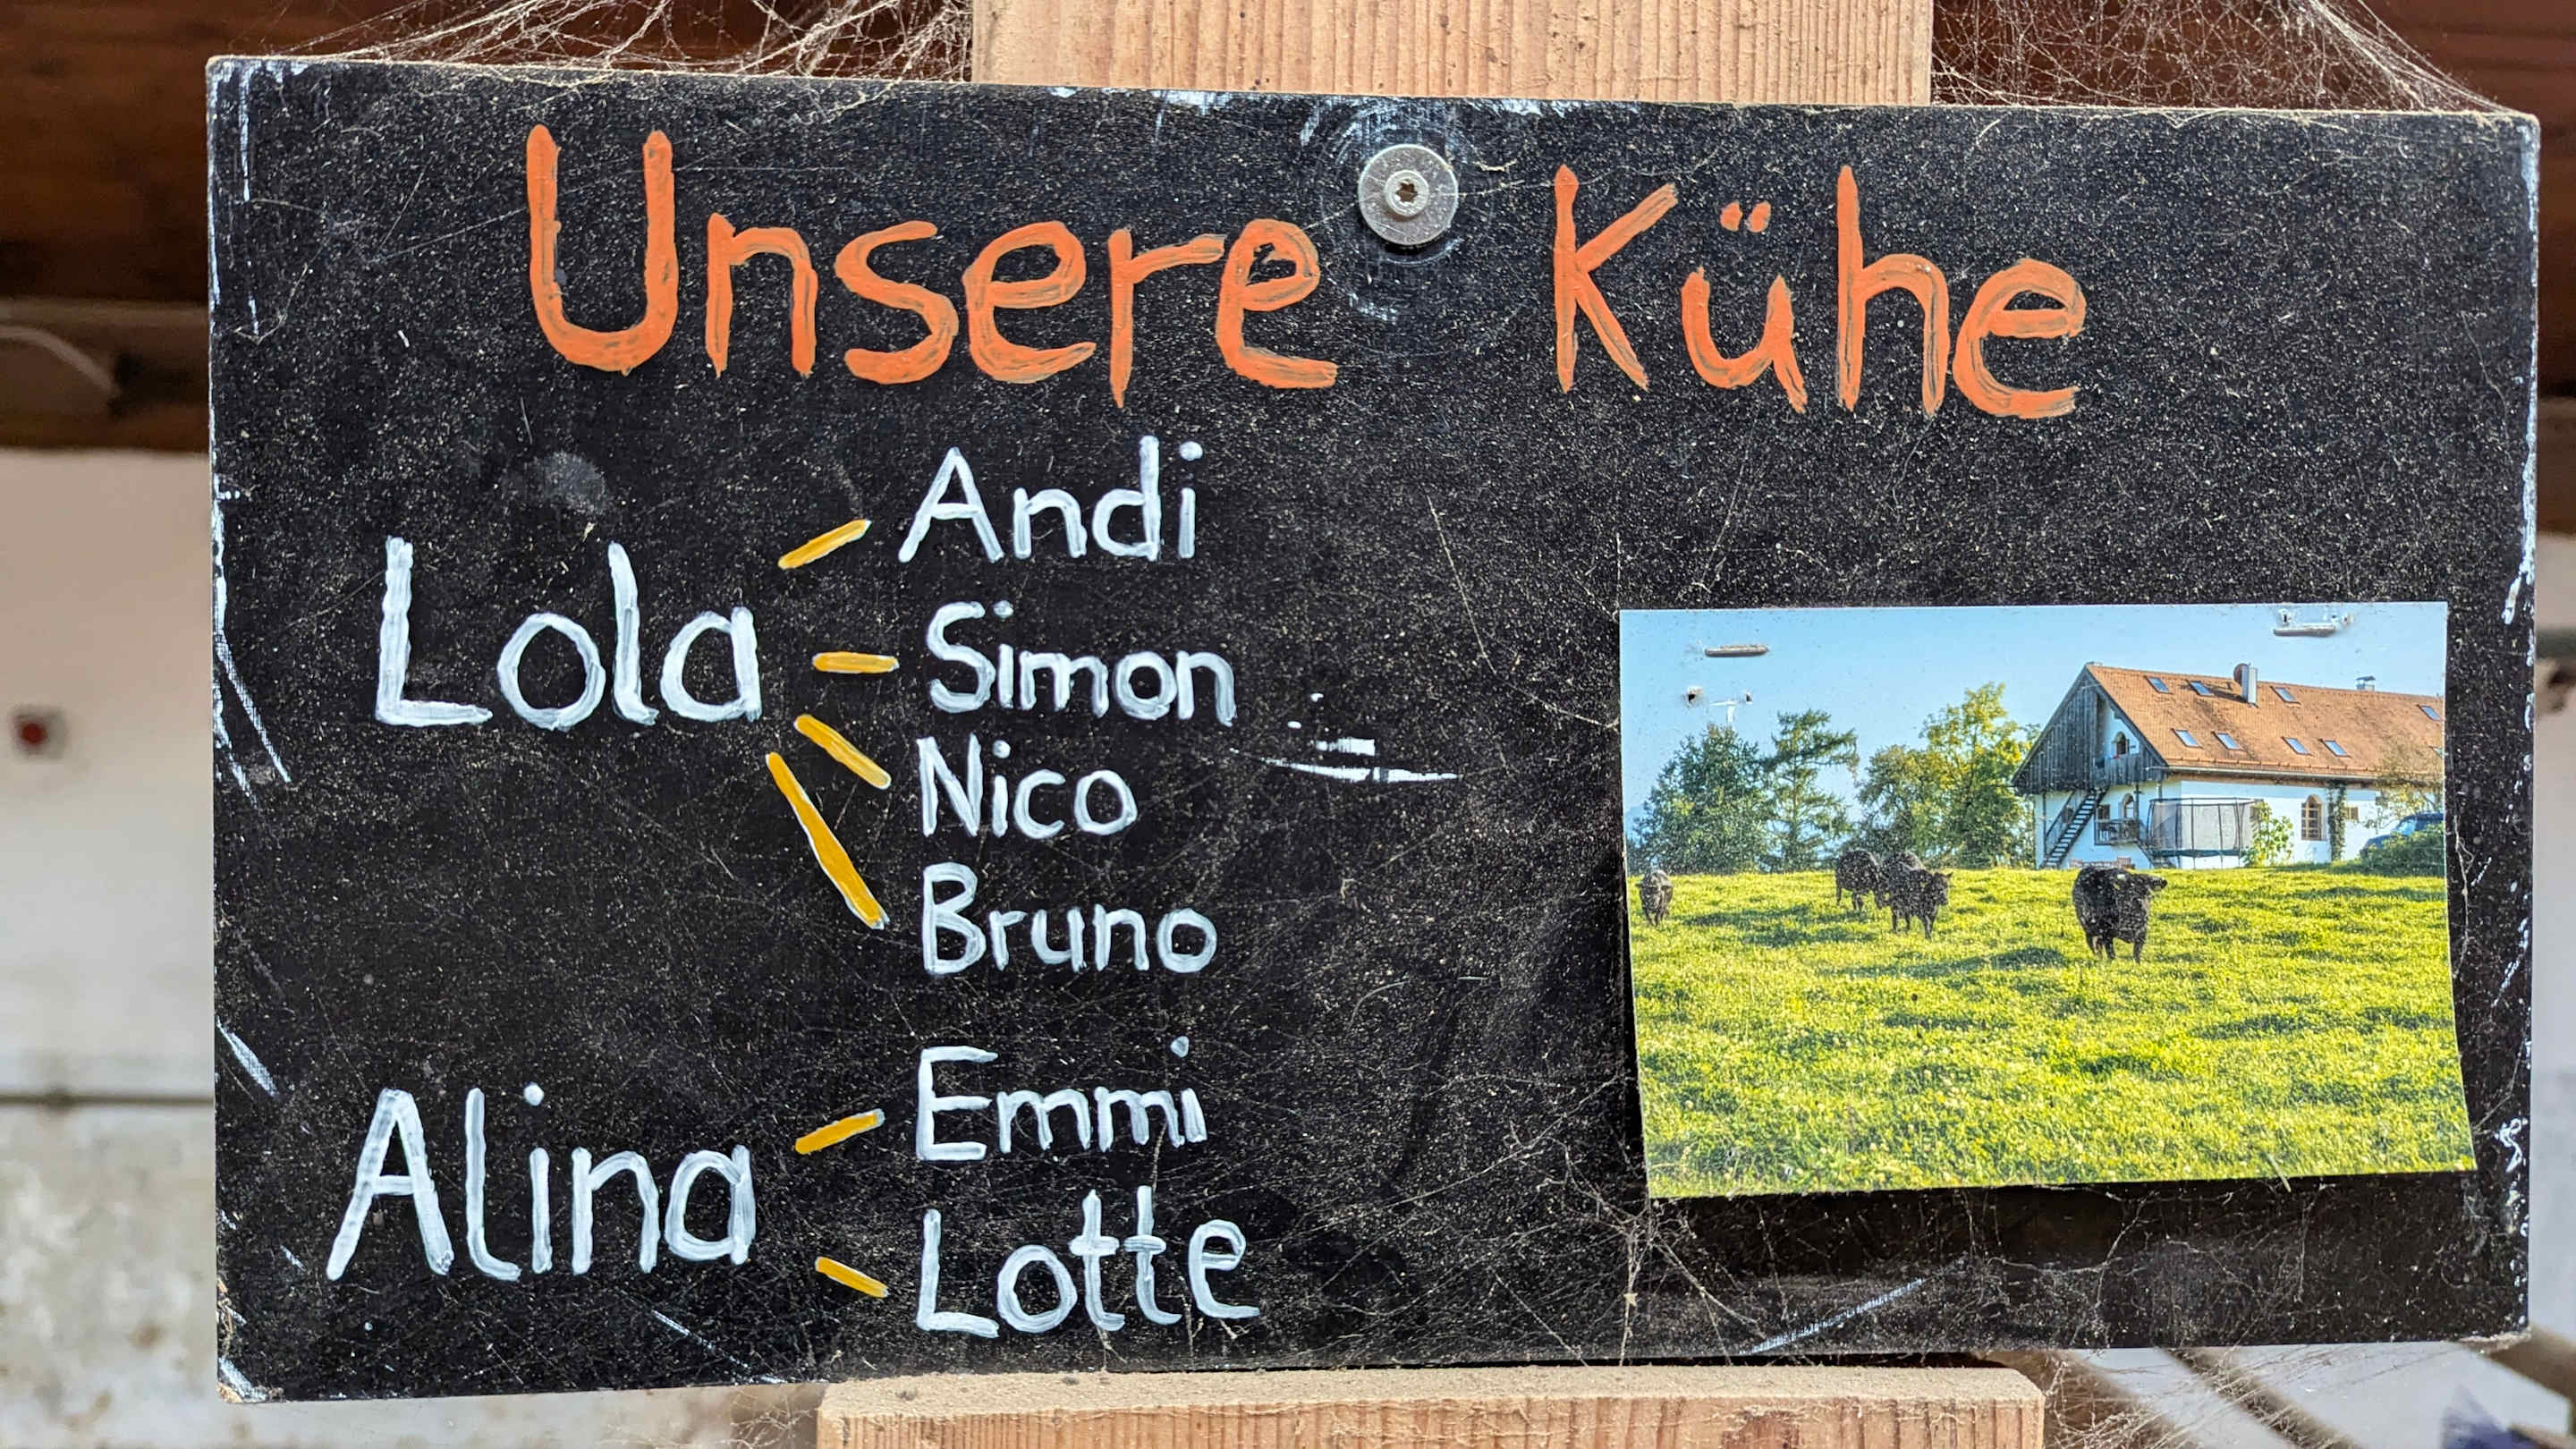 Unsere Kühe
Lola
Andi
Simon
Nico
Bruno
Alina
Emmi
Lotte